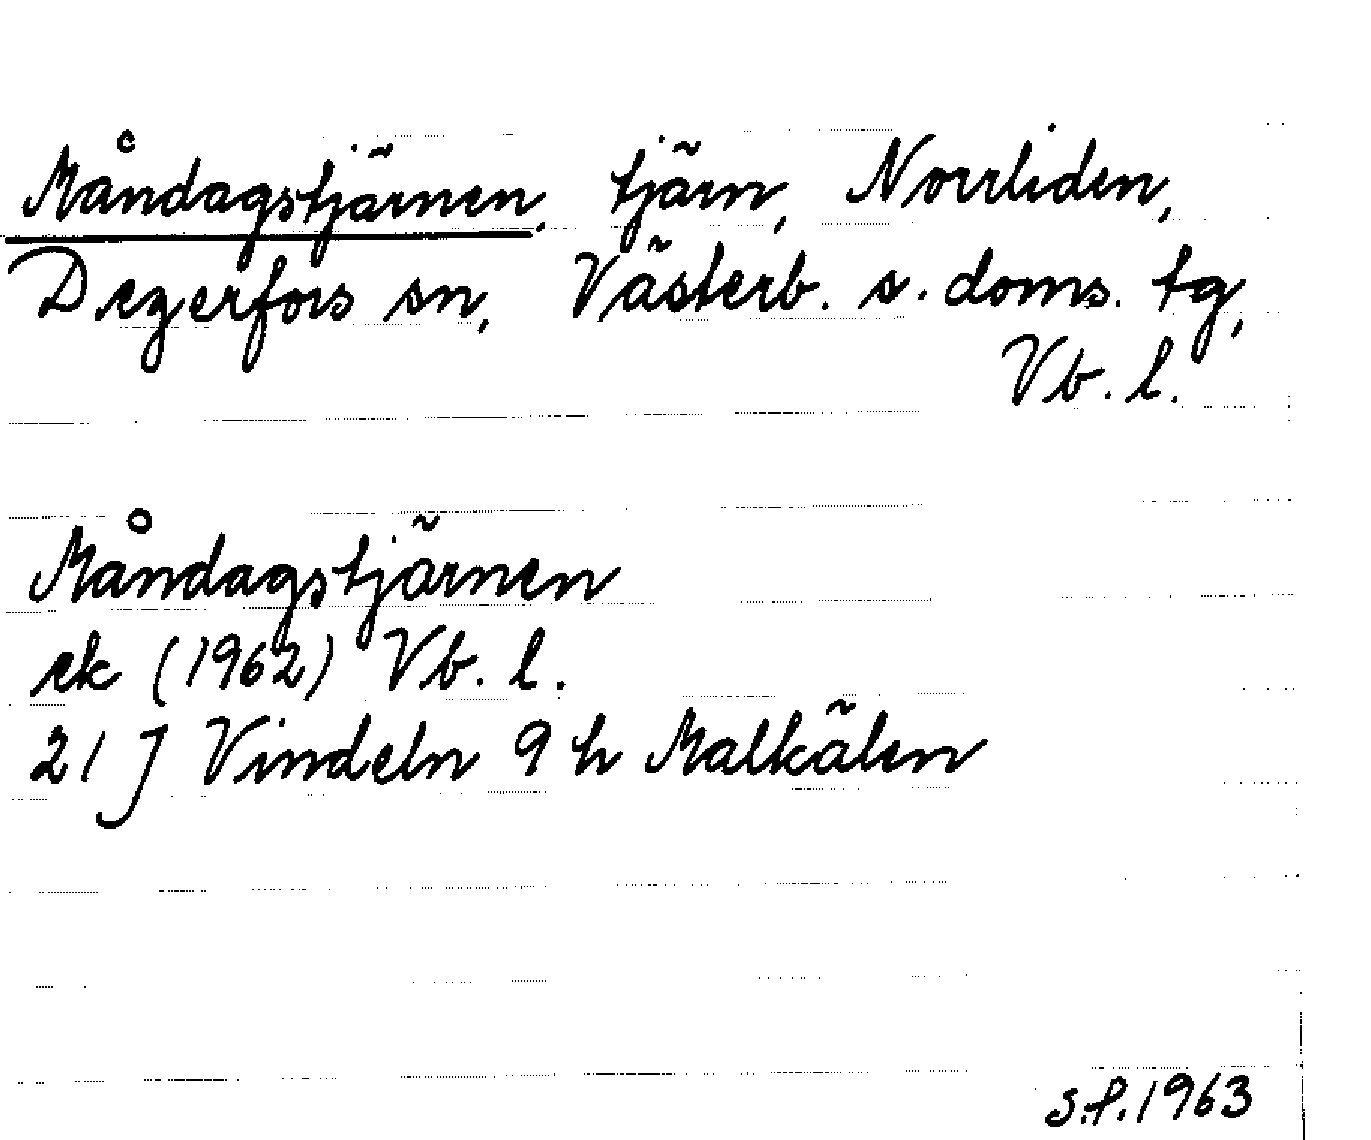 Måndagstjärnen, tjärn, Norrliden,
Degerfors sn, Västerb. s. doms. tg,
Vb. l.
Måndagstjärnen
ek (1962) Vb. l.
21 J Vindeln 9 h Malkälen
s.f. 1963